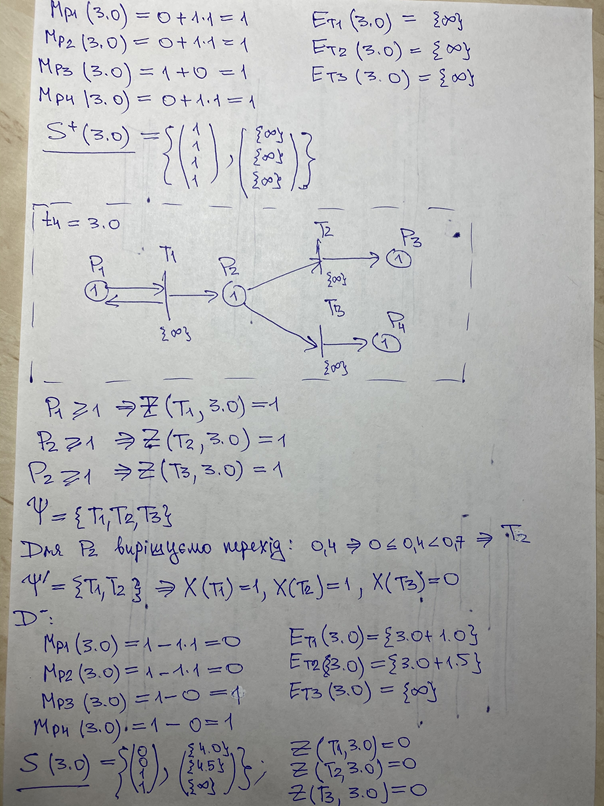 Mp1 (3.0) = 0+1·1 = 1
Mp2 (3.0) = 0+1·1 = 1
Mp3 (3.0) = 1+0 = 1
Mp4 (3.0) = 0+1·1 = 1
ET1 (3.0) = {∞}
ET2 (3.0) = {∞}
ET3 (3.0) = {∞}
S⁺(3.0) = {(1 1 1 1), ({∞} {∞} {∞})}
t4 = 3.0
P1
1
T1
{∞}
P2
1
T2
{∞}
P3
1
T3
{∞}
P4
1
P1 ⩾ 1 ⇒ Z(T1, 3.0) = 1
P2 ⩾ 1 ⇒ Z(T2, 3.0) = 1
P2 ⩾ 1 ⇒ Z(T3, 3.0) = 1
Ψ = {T1, T2, T3}
Для P2 вирішуємо перехід: 0,4 ⇒ 0 ≤ 0,4 < 0,7 ⇒ T2
Ψ' = {T1, T2} ⇒ X(T1) = 1, X(T2) = 1, X(T3) = 0
D⁻:
Mp1 (3.0) = 1 − 1·1 = 0
Mp2 (3.0) = 1 − 1·1 = 0
Mp3 (3.0) = 1 − 0 = 1
Mp4 (3.0) = 1 − 0 = 1
ET1 (3.0) = {3.0+1.0}
ET2 (3.0) = {3.0+1.5}
ET3 (3.0) = {∞}
S (3.0) = {(0 0 1 1), ({4.0} {4.5} {∞})};
Z(T1, 3.0) = 0
Z(T2, 3.0) = 0
Z(T3, 3.0) = 0